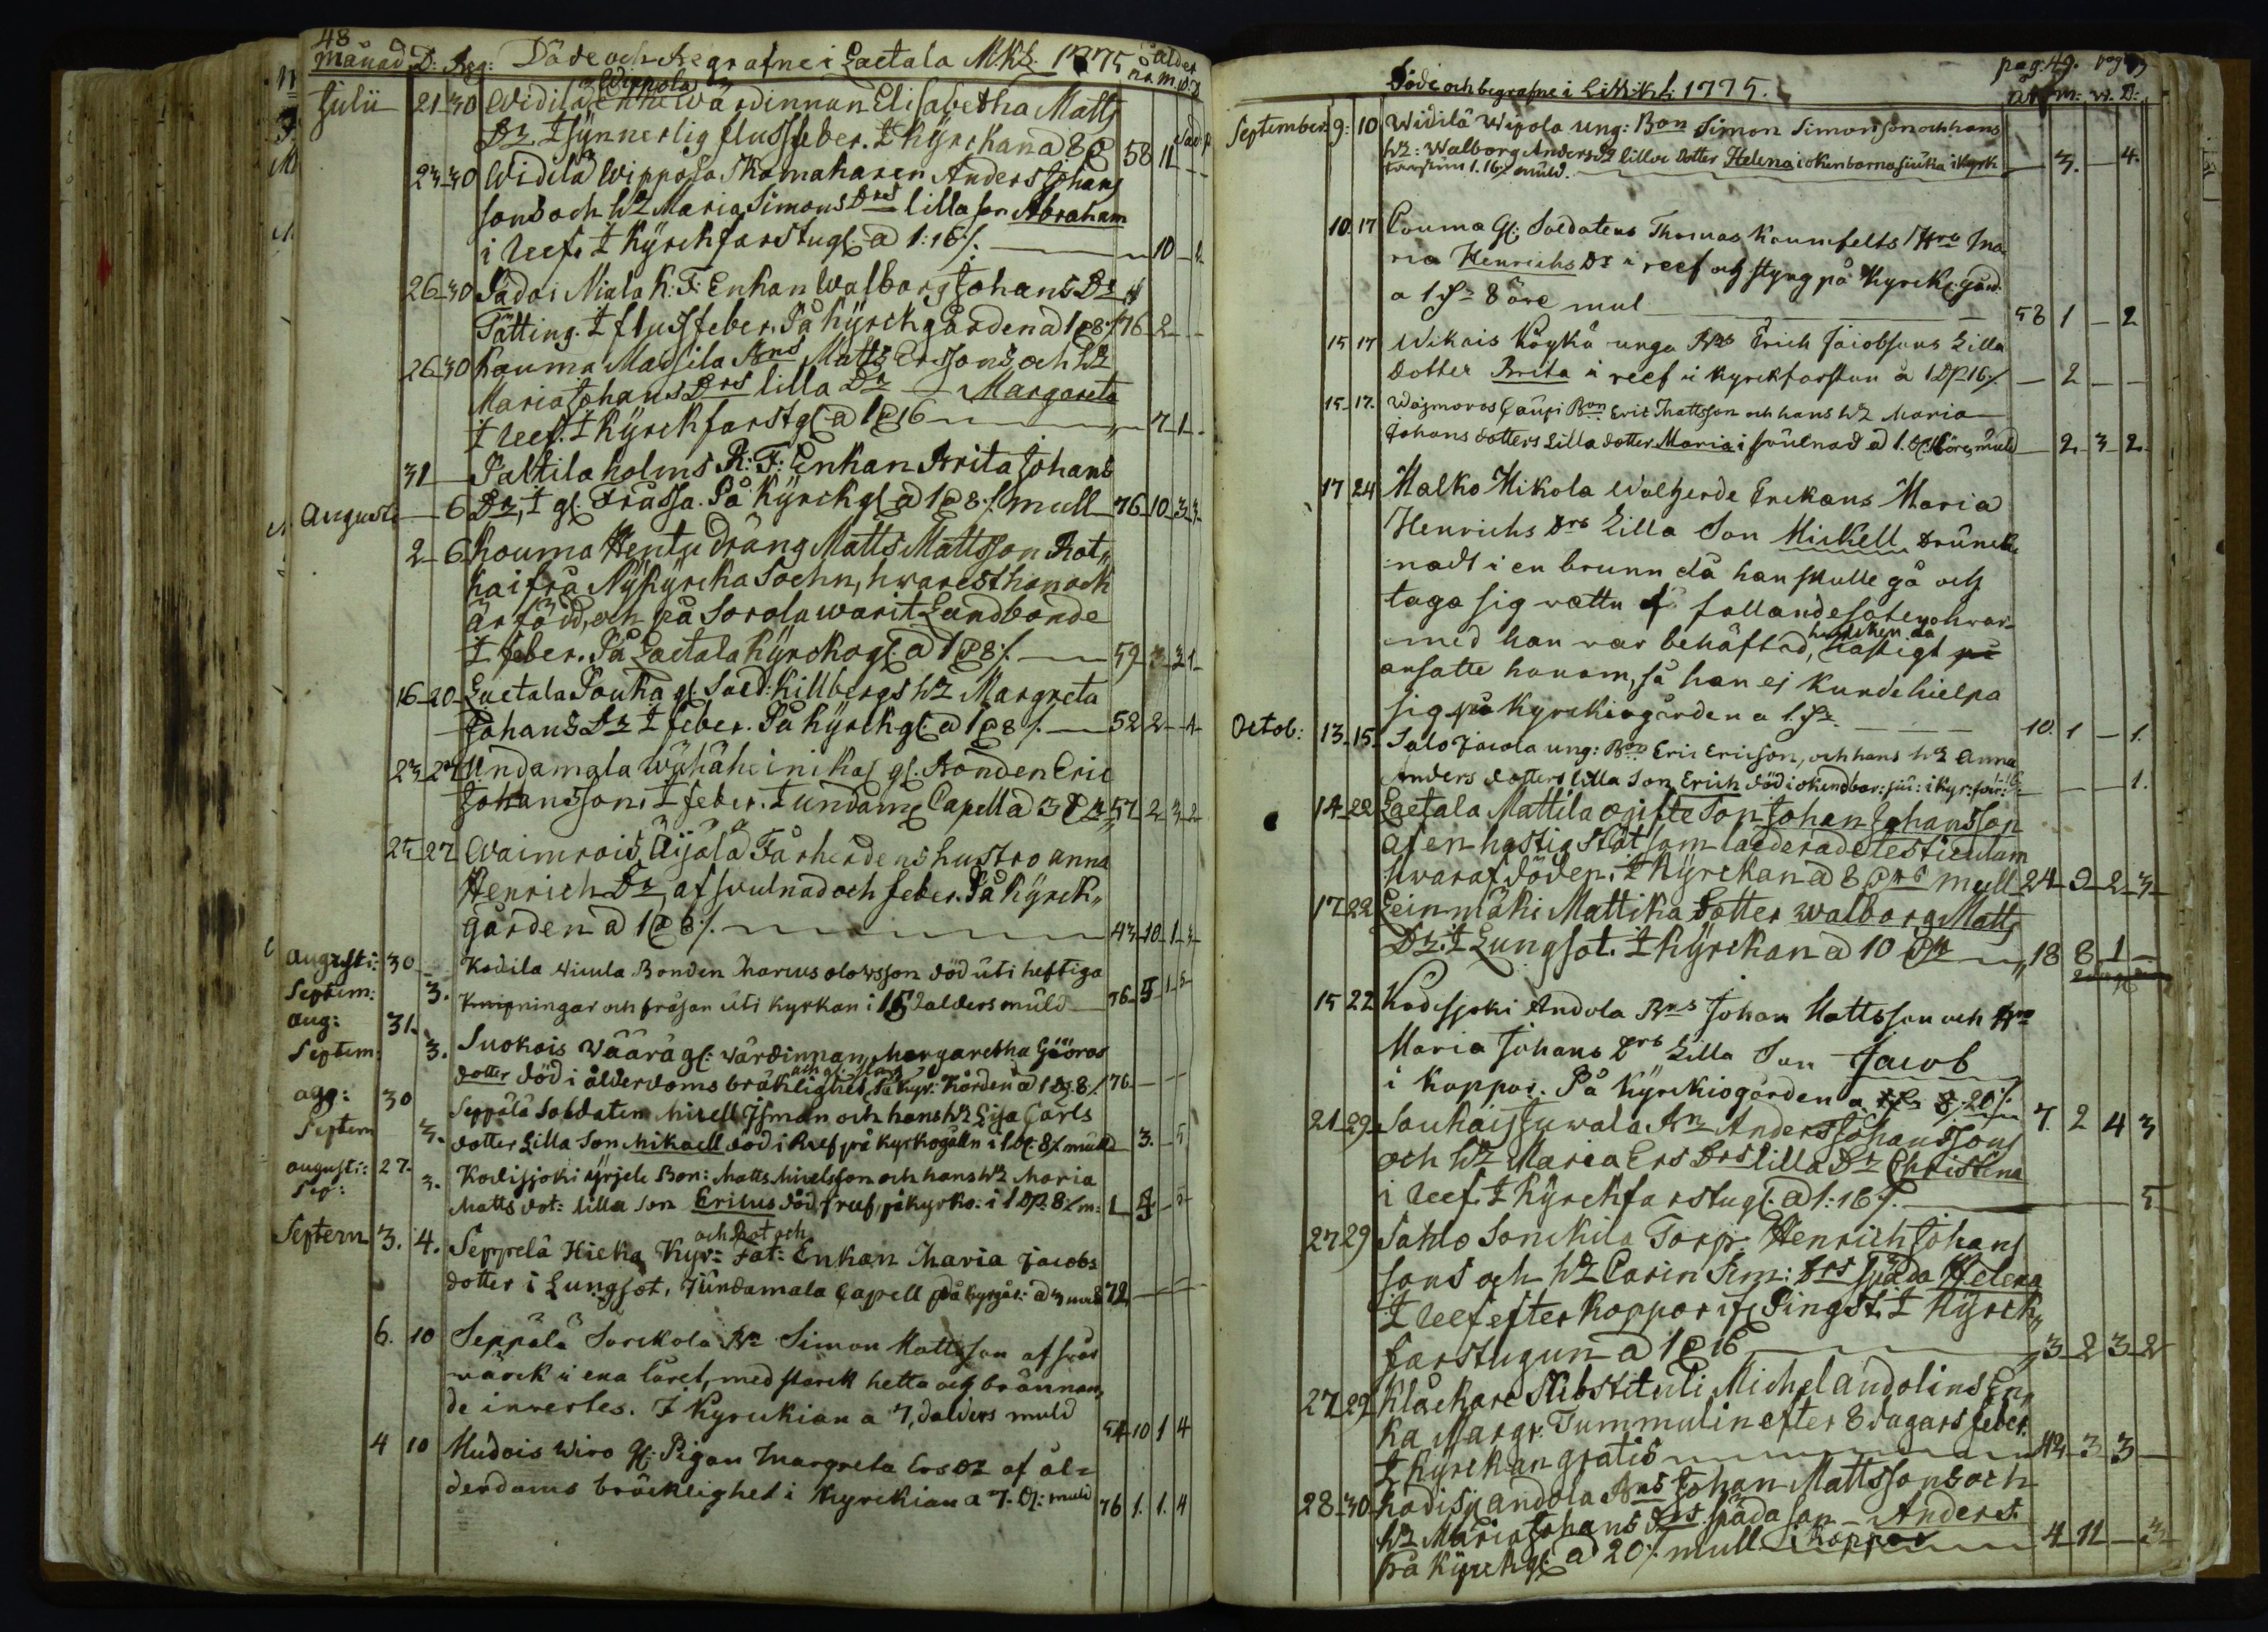 48
Månad D: Beg: Döde och Begrafne i Laetala Mkl. 1775 ålder
år. m. w. D
Julii 21 30 Widilä Wippola Enke Wärdinnan Elisabetha Matts
Dr. I synnerlig flussfeber. I Kÿrckan a 8 58 11
23 30 Widilä Wippola Skomakaren Anders Johans
sons och hz Maria Simons Drs lilla son Abraham
i reef. I Kÿrckfarstug: a 1:16 /. 10
26 30 Enkan Walborg Johans Dr
Tätting. I flussfeber. På Kÿrckgården a 1 8 /. 76 2
26 30 Kauma Madsila Bns Matts Ersons och hz
Maria Johans Drs lilla Dr Margareta
I reef. I Kÿrckfarstg: a 1 16 7 1
31 Paltila holms R: F: Enkan Brita Johans
Augusti 6 Dr, I gl: Frässa. På Kÿrckg: a 1 8 /. mull 76 10 3 3
2 6 Kouma Hentu dräng Matts Mattsson Rot„
kai frå Nÿkÿrcka Sochn, hwarest han ock
är född, och på Sorola warit Landbonde
I feber. På Laetala Kÿrckog: a 1 8 /. 59 3 21
16 20 Laetala Pouka gl: Sold: Killbergs hz Margreta
Johans Dr I feber. På Kÿrckg: a 1 8 /. 52 2 4
23 27 Undamala Wähäheinikas gl: Bonden Eric
Johansson, I feber. I undam: Capell a 3 57 2 3 2
25 27 Waimrois Äijälä Fårherdens hustro Anna
Henrich Dr, af svulnad och feber. På Kÿrck„
gården a 1 8 /. 43 10 1 3
Augusti: 30 Kodila Bonden Marcus Olowsson död uti heftiga
Septem: 3. knipningar och fråsan uti Kyrkan i 15 dalders muld 76 5 1 5
Aug: 31. Suokais Wäärä gl: Wärdinnan Margaretha Gööras
Septem: 3. dotter död i ålderdoms bräklighet, På kyr: Kården a 1 8 /. 76
agg: 30 Seppälä Soldaten Micell Jsman och hans hz Lisa Carls
Septem 3. dotter Lilla Son Mikaell död i Reef på kyrkogålln i 1 8 /. muld 3. 5
augusti: 27. Kodisjoki Yrjele Bon: Matts Mickelsson och hans hz Maria
Sep: 3. Matts dot: lilla son Ericus död i reef, på kyrko: i 1 8 /. m: 1 5
och Rot och
Septem 3. 4. Seppelä Hieka Kyr: Fat: Enkan Maria Jacobs
dotter i Lungsot, i undamala Capell på kyrgår: a 72
6. 10 Seppälä Sorckola Bn Simon Mattsson af svår
wärck i ena låret, med starck hetta och brännan„
de invertes. I Kyrckian a 7, dalders muld 54 10 1 4
4 10 Mudois Wiro gl: Pigan Margreta Ers Dr af ål=
derdoms bräcklighet i Kyrckian a 7. muld 76 1. 1. 4
pag: 49.
Döde och begrafne i 1775.
år m: w. D:
September 9: 10 Widilä Wipola ung: Bon Simon Simonson och hans
hz: Walborg Anders dr lilla Dotter Helena i okunbarna siuka i kyrk
farstun 1. 16 /. muld. 3. 4.
10. 17 Couma gl: Soldatens Thomas Kaunifelts Hro Ma
ria Henrichs Dr i reef och styng på Kyrck: gård
a 1 8 öre mul 58 1 2
15 17 Wikais Köykä unga Bns Erich Jacobsons Lilla
Dotter Brita i reef i kyrckfarstun a 1 16 /. 2
15 17. Bon Eric Mattsson och hans hz Maria
Johans dotters Lilla dotter Maria i svulnad a 1. 16 öre, muld 2 3 2
17 24 Malko Mikola Enckans Maria
Henrichs Drs Lilla Son Mickell Drunck
nadt i en brunn då han skulle gå och
taga sig vattn af fallandesoten hwar
med han war behäftad, hwilcken då hastigt på
ansatte honom, så han ej kunde hielpa
sig på Kyrckiogården a 1. 10. 1 1.
Octob: 13 15 Salo Jacola ung: Bon Eric Ericson, och hans hz Anna
Anders dotters lilla Son Erich död i okendbar: siu: i kyr: far: 1.
14 22 Laetala Mattila ogifte Son Johan Johansson
af en hastig stöt som laederade testiculum
hwaraf döden. I Kÿrckan a 8 mull 24 9 2 3
17 22 Leinmäki Mattika Dotter Walborg Matts
Dr. I Lungsot. I Kÿrckan a 10 18 8 1
15 22 Kodisjoki Andola Bns Johan Mattsson och Hro
Maria Johans Drs Lilla Son Jacob
i Koppor. På Kÿrckiogården a 20 /. 7. 2 4 3
21 29 Bn Anders Johanssons
och hz Maria Ers Drs lilla Dr Christina
i reef. I Kÿrckfarstug: a 1:16 /. 5
27 29 Sahlo Sonckila Torp: Henrich Johans
sons och hz Carin Sim: Drs späda Helena
I reef efter Koppor Pingst. I Kÿrck„
farstugun a 1 16 3 2 3 2
27 29 Klåckare Substituti Michel Andolins En„
ka Margr: Tummulin efter 8 dagars feber.
I Kÿrckan gratis 42 3 3
28 30 Kodisj: Andola Bns Johan Mattssons och
hz Maria Johans Drs. späda son Anders.
På Kÿrckg: a 20 /. mull i koppor 4 11 3